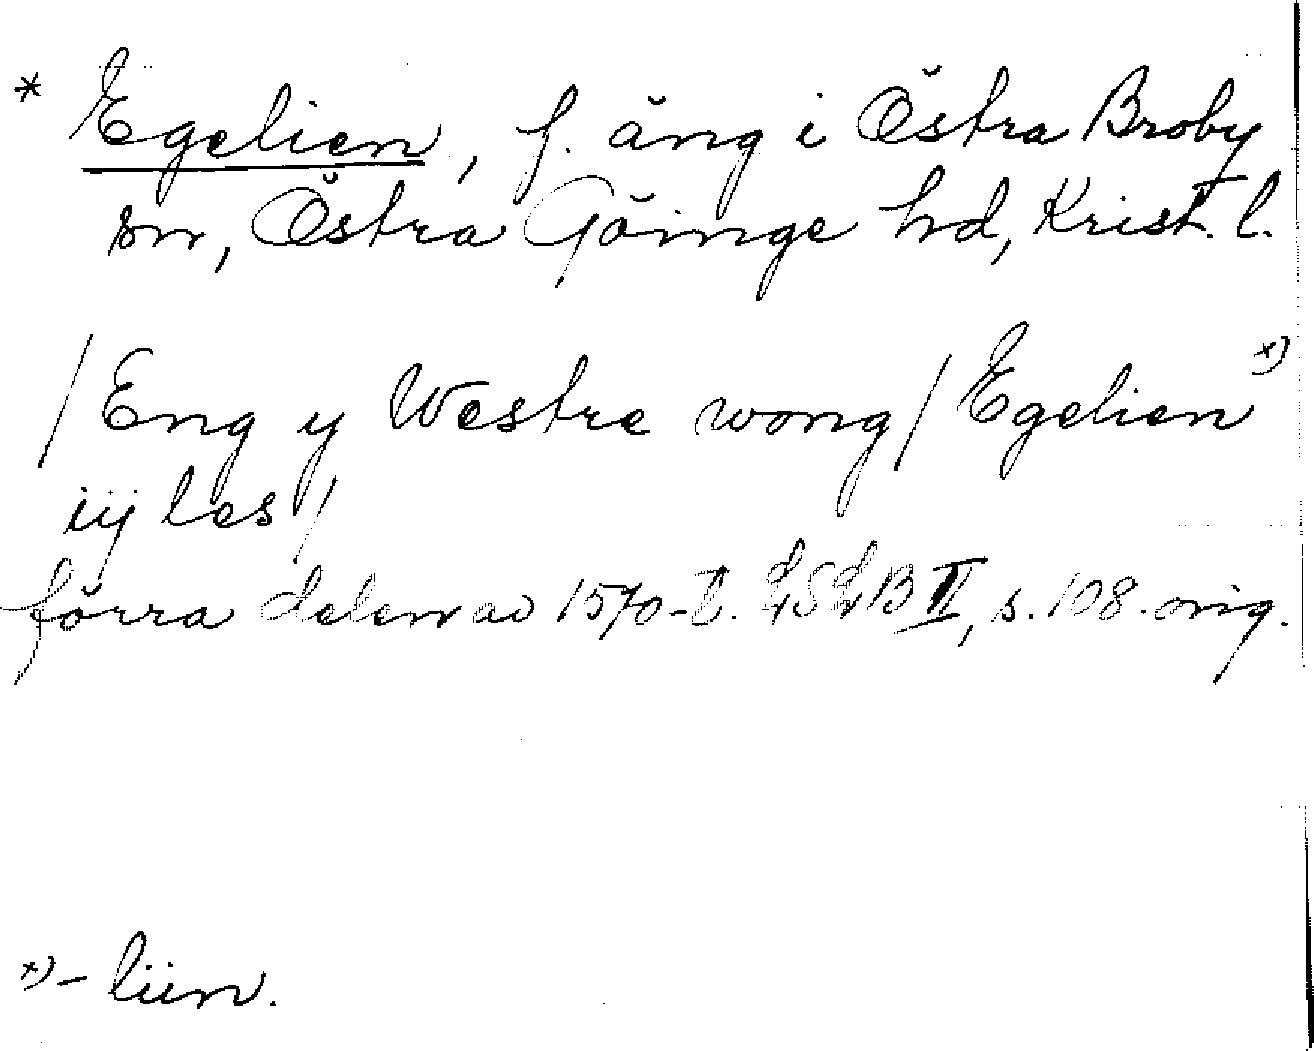 * Egelien, f. äng i Östra Broby
sn, Östra Göinge hd, Krist. l.
/Eng y Westre wong/ Egelien x)
iij les/
förra delen av 1570-t. LSLB II, s. 108. orig.
x) - liin.